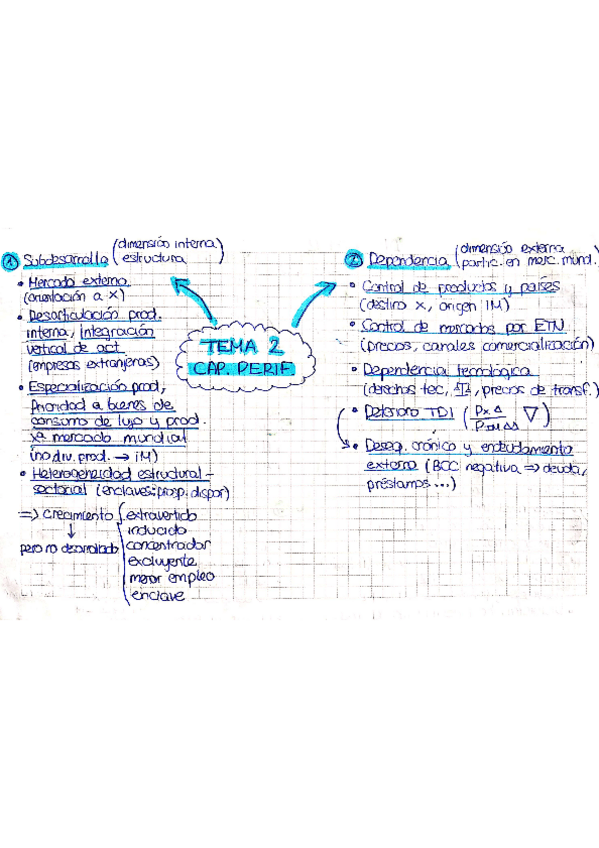 TEMA 2
CAP. PERIF
① Subdesarrollo (dimensión interna
estructura)
• Mercado externo
(orientación a X)
• Desarticulación prod.
interna, integración
vertical de act
(empresas extranjeras)
• Especialización prod,
Prioridad a bienes de
consumo de lujo y prod.
xa mercado mundial
(no div. prod. → IM)
• Heterogeneidad estructural-
sectorial (enclaves; prop; dispar)
=> crecimiento { extravertido
↓ inducido
pero no desarrollado concentrador
excluyente
menor empleo
enclave
② Dependencia (dimensión externa
partic. en merc. mund.)
• Control de productos y países
(destino X, origen IM)
• Control de mercados por ETN
(precios, canales comercialización)
• Dependencia tecnológica
(derechos tec, , precios de transf.)
• Deterioro TDI (Px Δ
PIM ΔΔ ∇)
• Deseq. crónico y endeudamiento
externo (BCC negativa => deuda,
préstamos...)